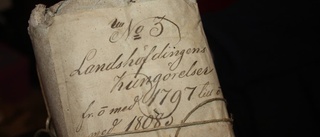 No 5
Landshöfdingens
kungörelser
fr. o med 1797 till
med 1808